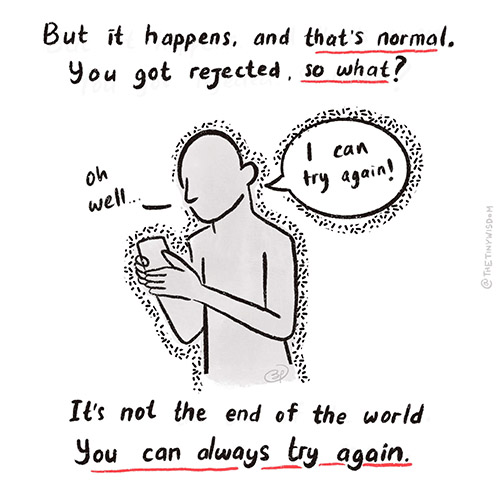 But it happens, and that's normal.
You got rejected, so what?
I can
try again!
oh
well...
@THETINYWISDOM
It's not the end of the world
You can always try again.